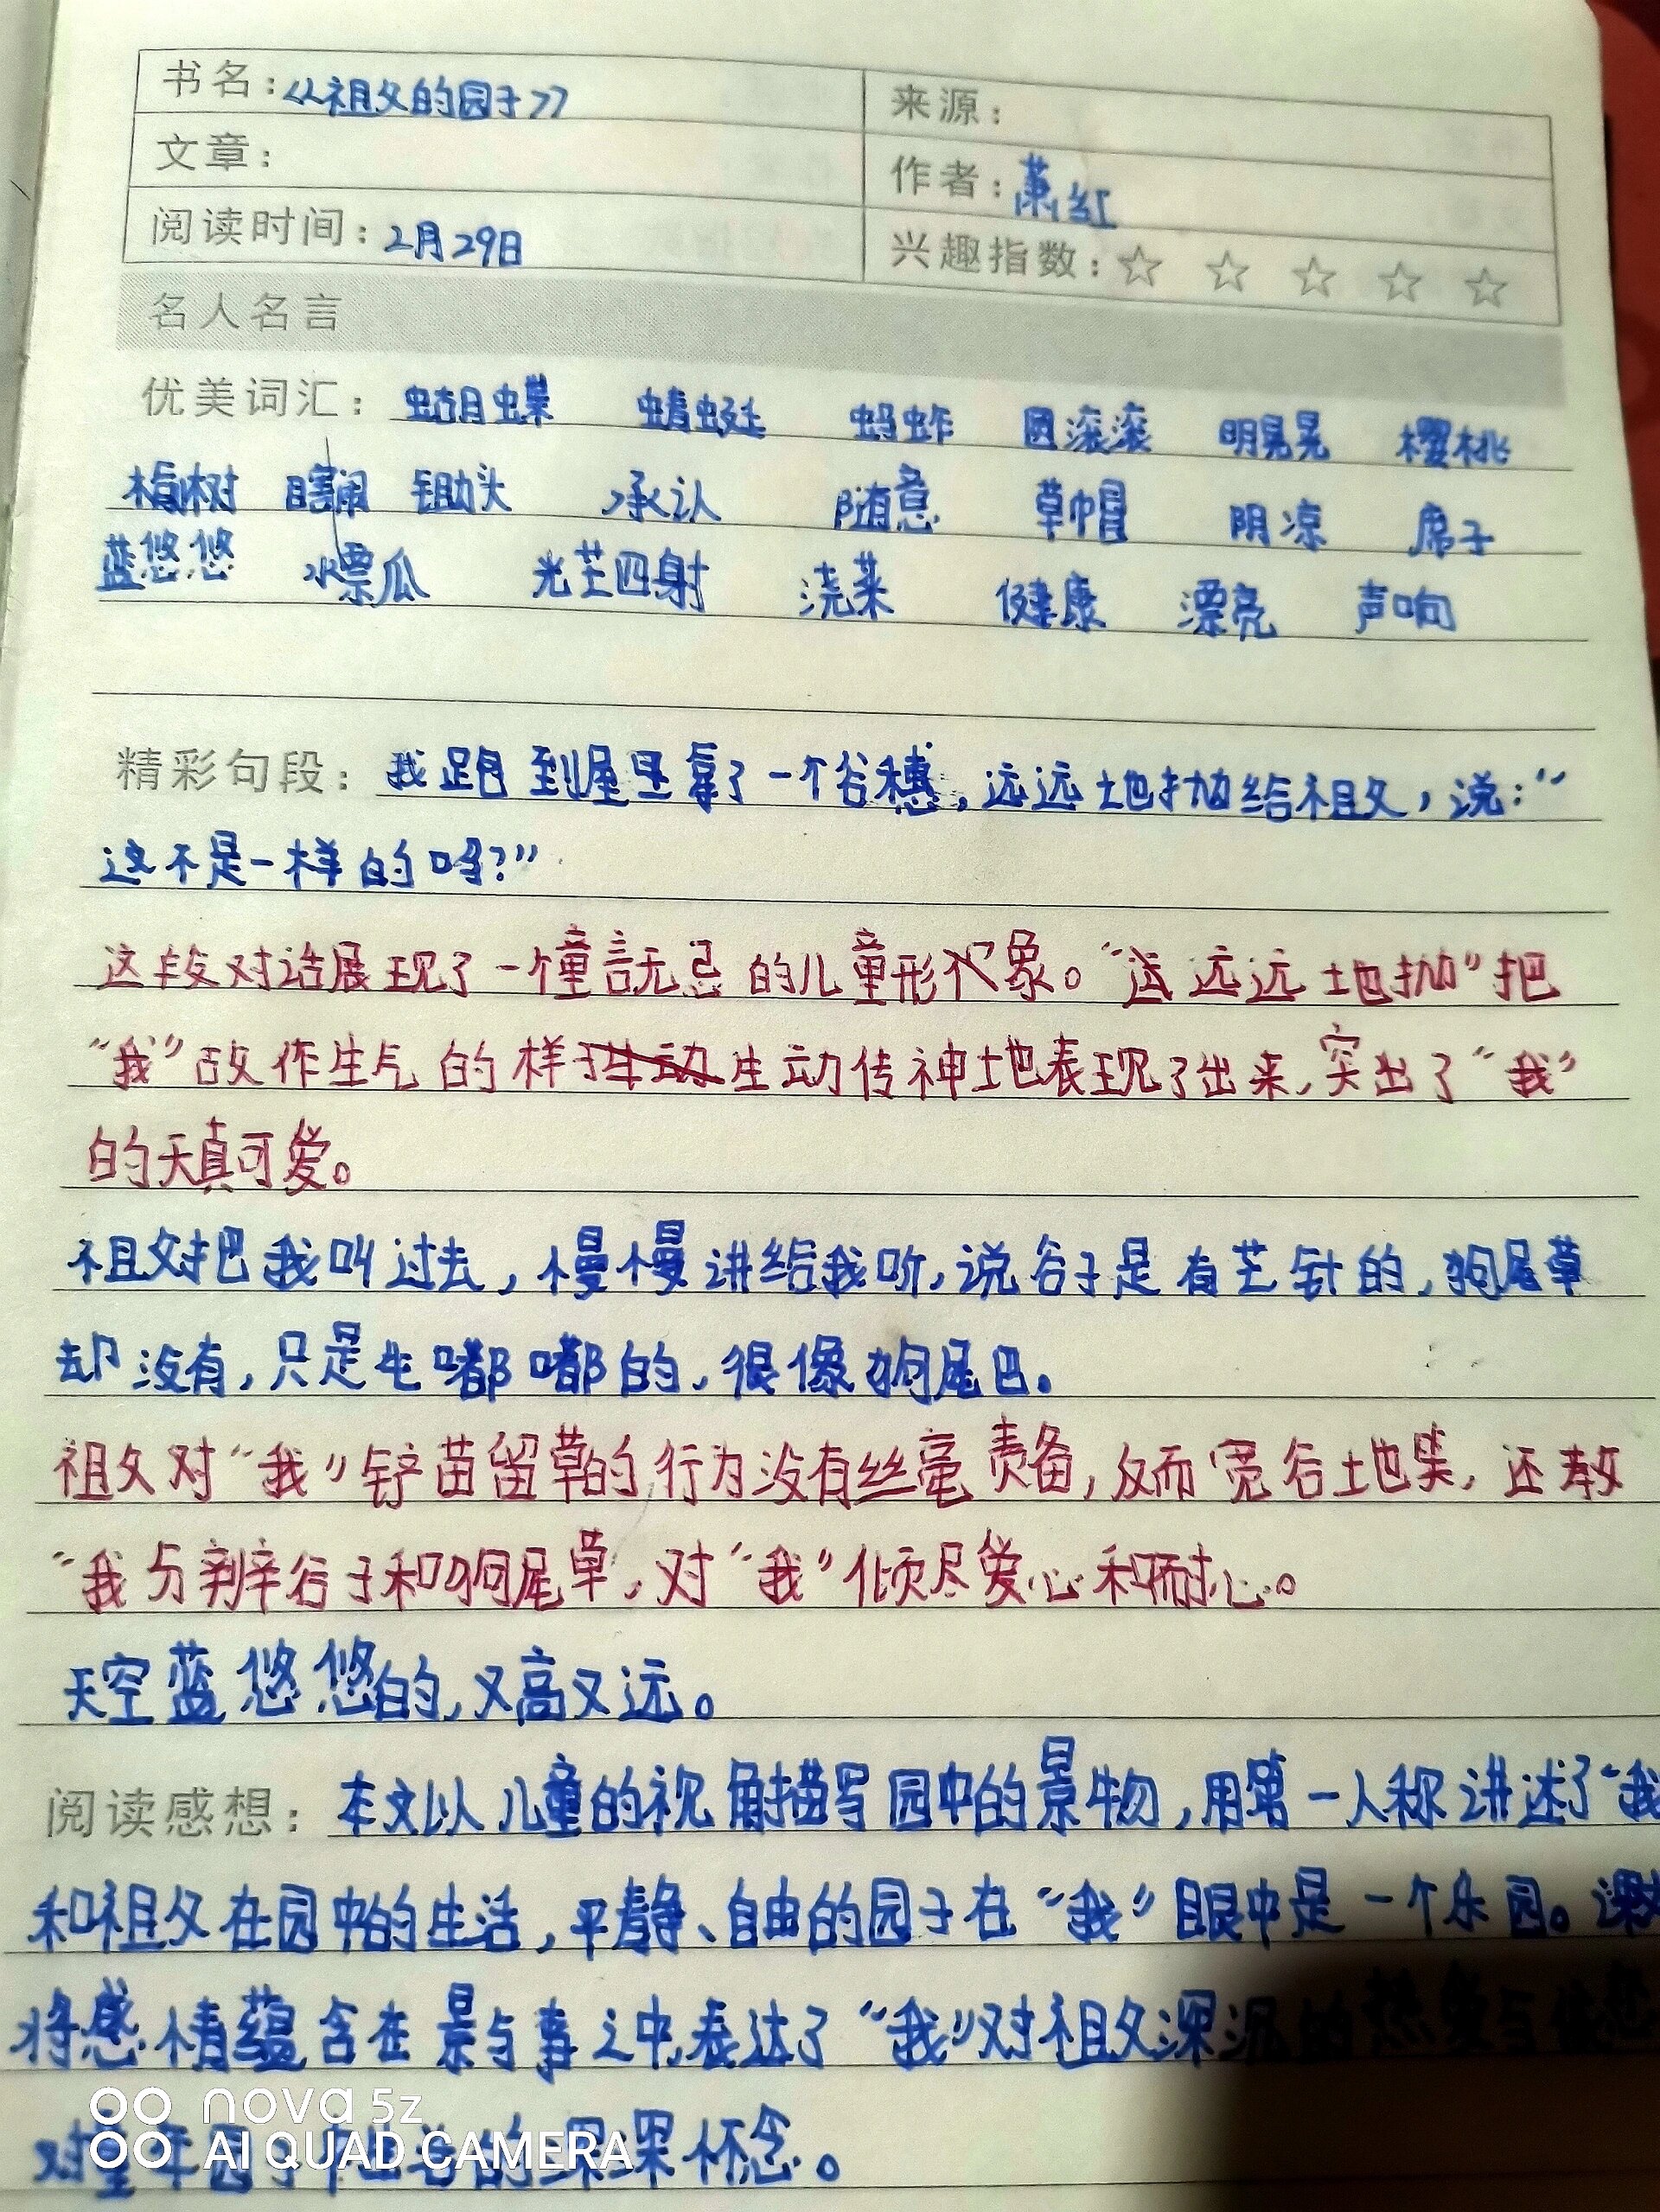 书名：《祖父的园子》 来源：
文章： 作者：萧红
阅读时间：2月29日 兴趣指数：☆ ☆ ☆ ☆ ☆
名人名言
优美词汇：蝴蝶 蜻蜓 蚂蚱 圆滚滚 明晃晃 樱桃
榆树 瞎闹 锄头 承认 随意 草帽 阴凉 席子
蓝悠悠 水漂瓜 光芒四射 浇菜 健康 漂亮 声响
精彩句段：我跑到屋里拿了一个谷穗，远远地抛给祖父，说：“
这不是一样的吗？”
这段对话展现了一个童言无忌的儿童形象。“远远地抛”把
“我”故作生气的样子生动传神地表现了出来，突出了“我”
的天真可爱。
祖父把我叫过去，慢慢讲给我听，说谷子是有芒针的，狗尾草
却没有，只是毛嘟嘟的，很像狗尾巴。
祖父对“我”铲苗留草的行为没有丝毫责备，反而宽容地笑，还教
“我分辨谷子和狗尾草，对“我”倾尽爱心和耐心。
天空蓝悠悠的，又高又远。
阅读感想：本文以儿童的视角描写园中的景物，用第一人称讲述了“我
和祖父在园中的生活，平静、自由的园子在“我”眼中是一个乐园。课文
将感情蕴含在景与事之中，表达了“我”对祖父深沉的热爱与
对童年园子中生活的深深怀念。
nova 5z
AI QUAD CAMERA